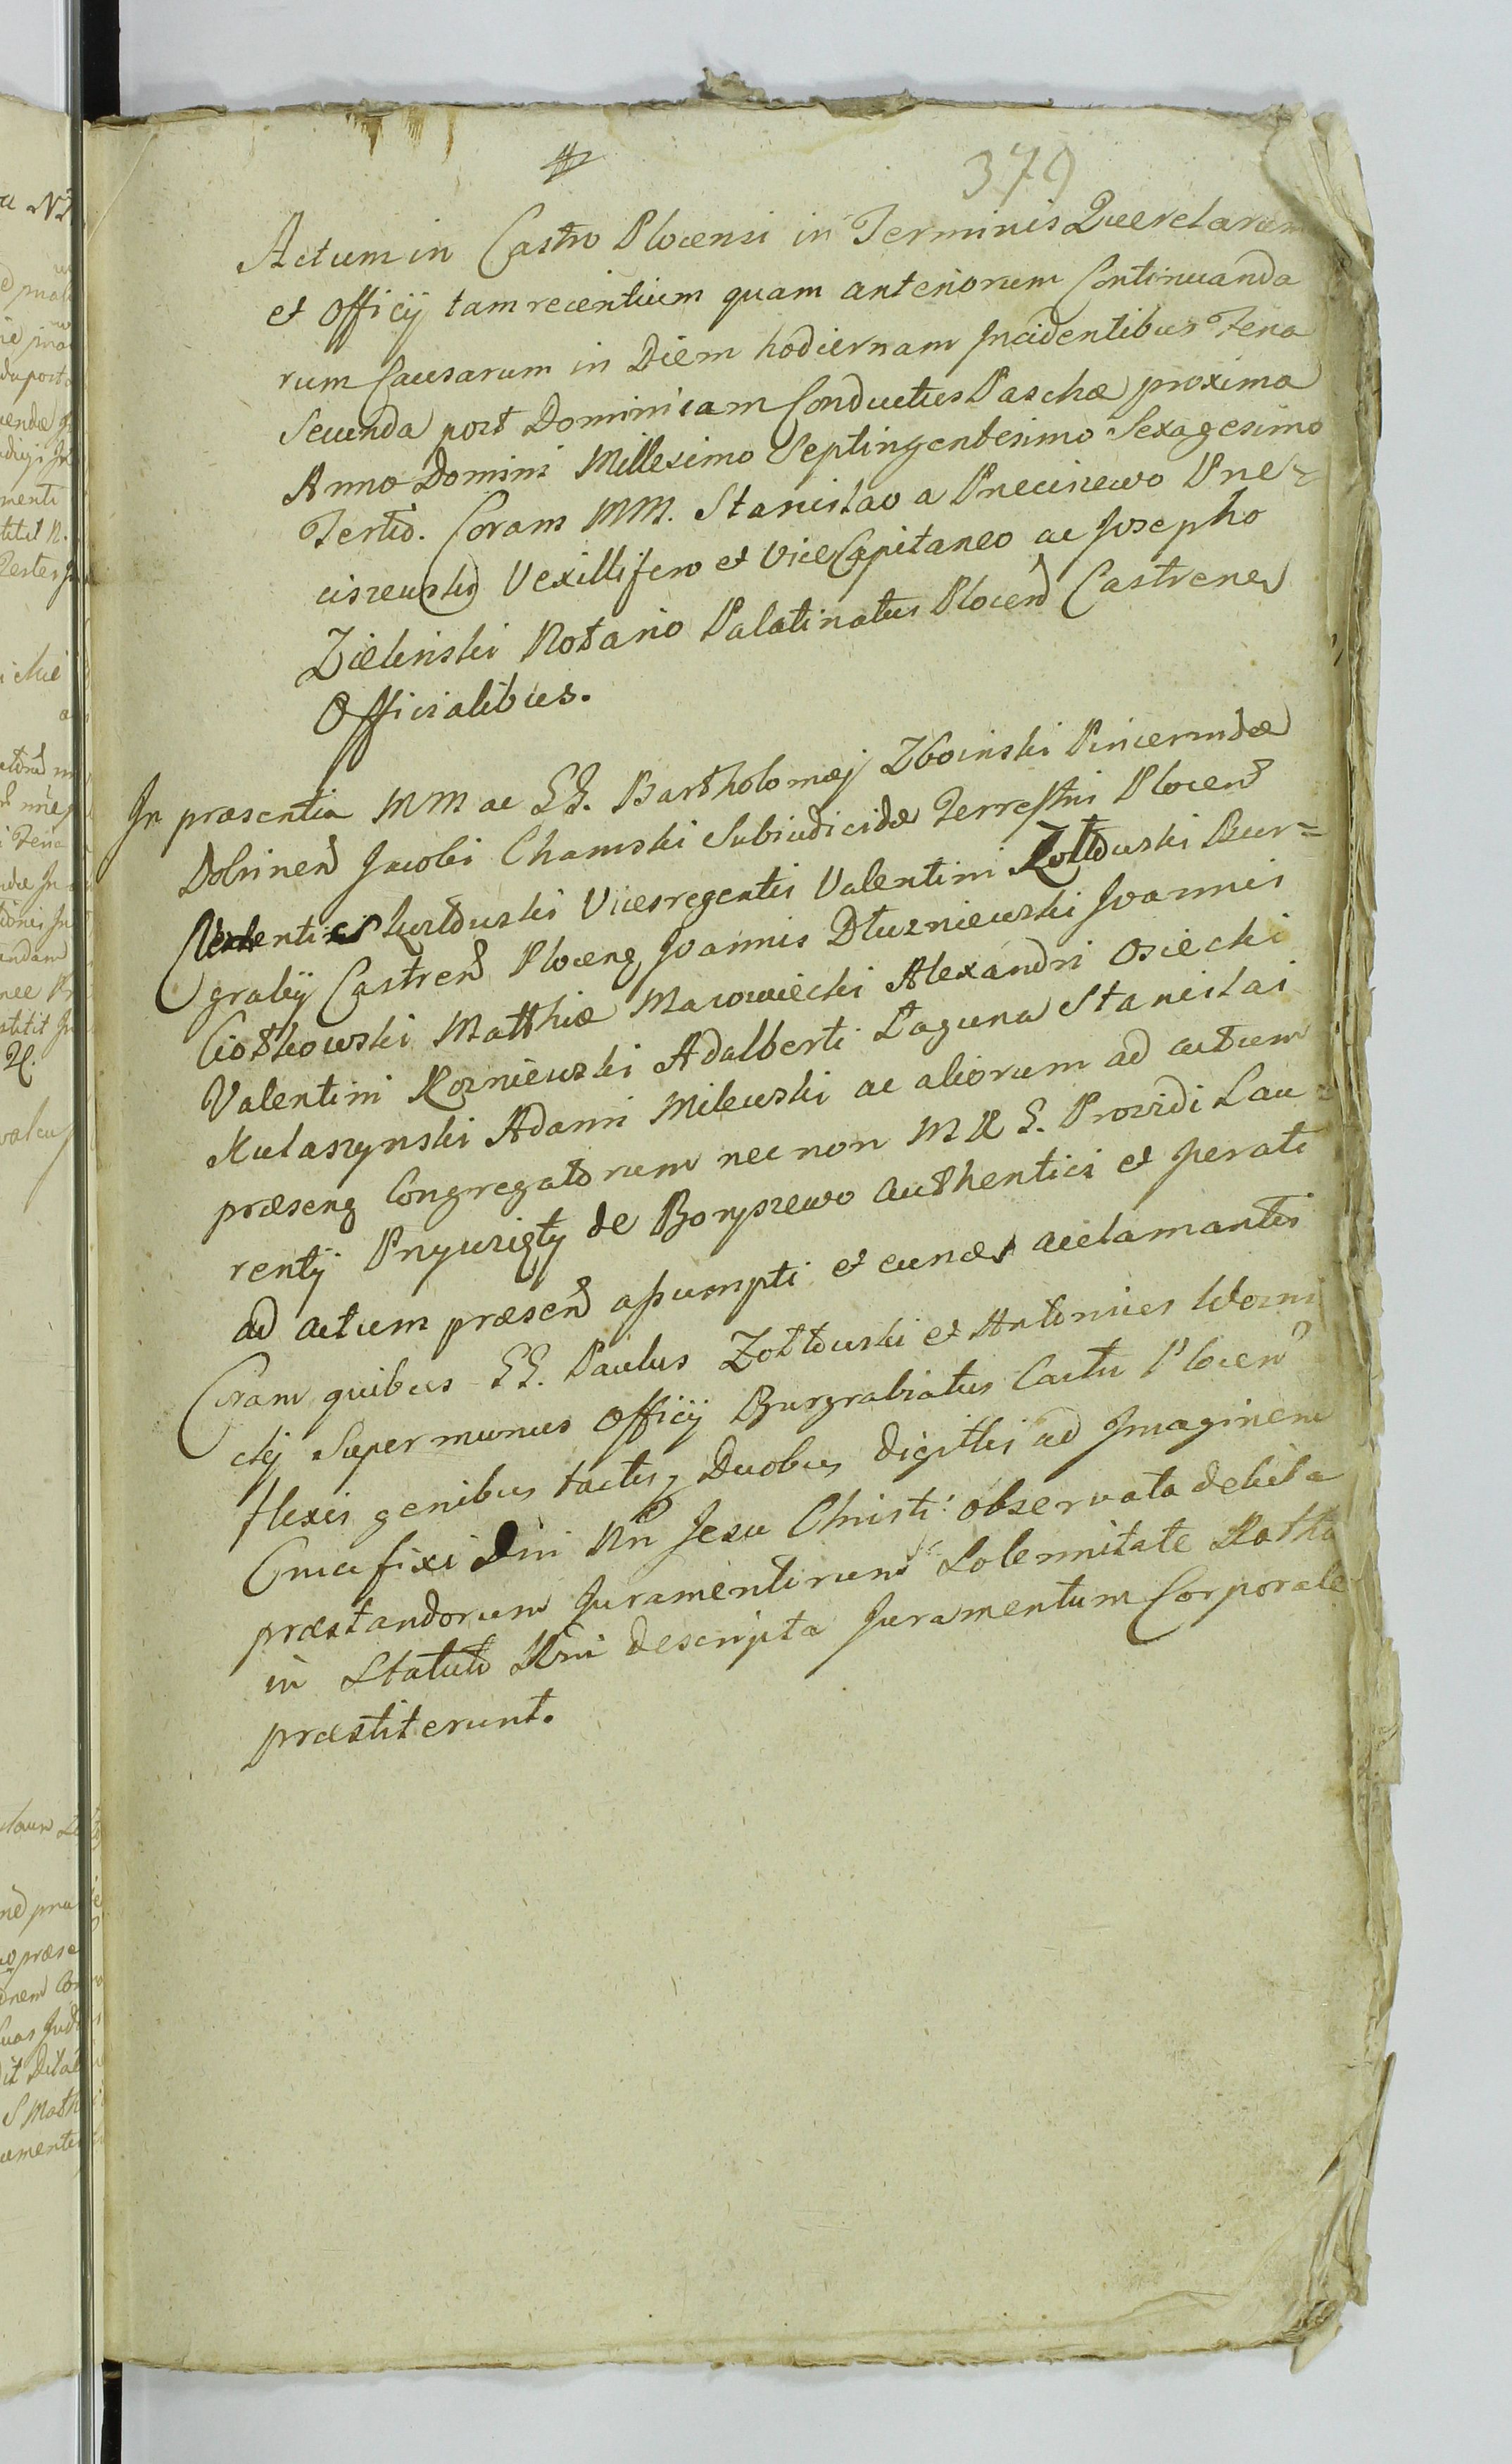 379
Actum in Castro Plocensi in Terminis Querelarum
et Officij tam recentium quam anteriorum Continuanda
rum Causarum in Diem hodiernam Incidentibus Feria
Secunda post Dominicam Conductus Paschæ proxima
Anno Domini Millesimo Septingentesimo Sexagesimo
Tertio. Coram MM. Stanislao a Preciszewo Pre=
ciszewski Vexillifero et ViceCapitaneo ac Josepho
Zielinski Notario Palatinatus Plocen Castrenen
Officialibus.
In præsentia MM ac GG. Bartholomæj Zboinski Pincernidæ
Dobrinen Jacobi Chamski Subiudicidæ Terrestri Plocen
Kozłowski Vicesregentis Valentini Zołtowski Bur=
grabij Castren Plocen Joannis Dłuzniewski Joannis
Ciołkowski Matthiæ Mazowiecki Alexandri Osiecki
Valentini Rozniewski Adalberti Laguna Stanislai
Kulaszynski Adami Milewski ac aliorum ad actum
præsen Congregatorum nec non Providi Lau=
rentij de Boryszewo authentici et Jurati
ad actum præsen assumpti et acclamantis
Coram quibus GG. Paulus Zołtowski et Antonius
Super munus Officij Burgrabiatus Castri Plocen
flexis genibus tactis Duobus digittis ad Imaginem
Crucifixi Dni Nri Jesu Christi observata debita
præstandorum Juramentorum Solennitate Rotha
in Statuto Rni descripta Juramentum Corporale
præstiterunt.